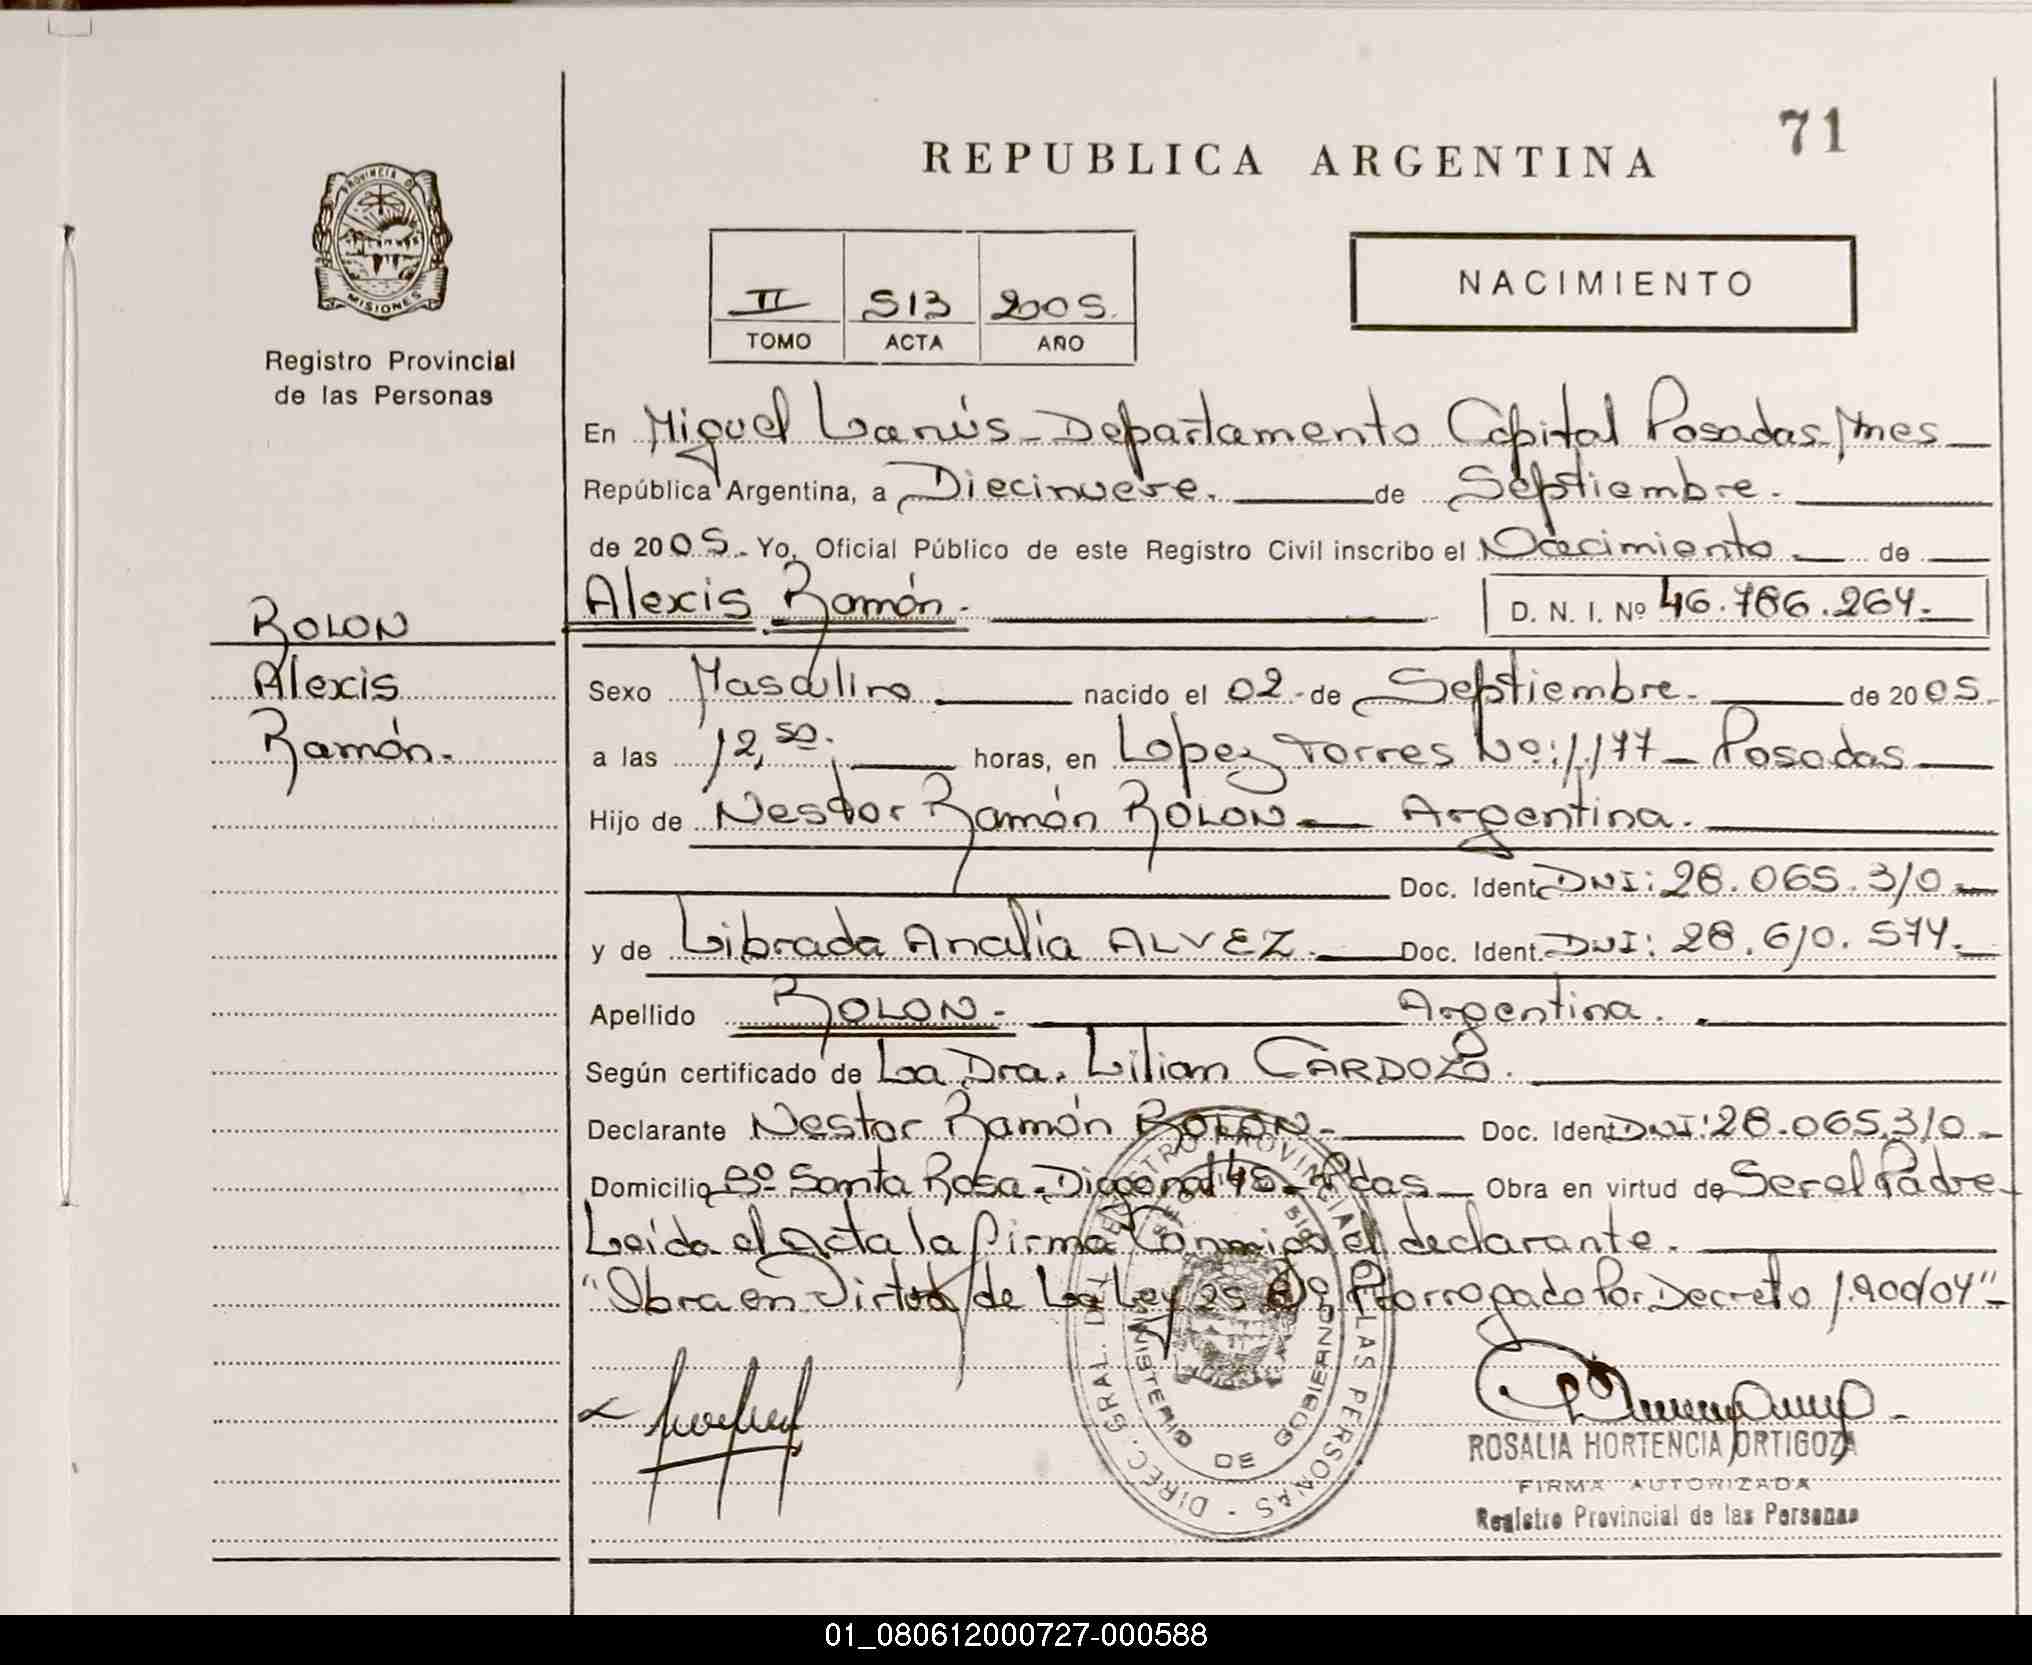 71
REPUBLICA ARGENTINA
PROVINCIA DE
MISIONES
Registro Provincial
de las Personas
II 513 2005.
TOMO ACTA AÑO
NACIMIENTO
En Miguel Lanús - Departamento Capital Posadas Mnes
República Argentina, a Diecinueve. de Septiembre.
de 2005. Yo, Oficial Público de este Registro Civil inscribo el Nacimiento de
Alexis Ramón. D. N. I. Nº 46.786.264.
ROLON
Alexis
Ramón.
Sexo Masculino nacido el 02 de Septiembre. de 2005.
a las 12,50. horas, en Lopez Torres Nº: 1.177 - Posadas
Hijo de Nestor Ramón ROLON - Argentina.
Doc. Ident. DNI: 28.065.310
y de Librada Analía ALVEZ. Doc. Ident. DNI: 28.610.574.
Apellido ROLON. Argentina.
Según certificado de La Dra. Lilian CARDOZO.
Declarante Nestor Ramón ROLON. Doc. Ident. DNI: 28.065.310
Domicilio Bº Santa Rosa - Diagonal 45 - Pdas Obra en virtud de Ser el Padre
Leída el Acta la firma Conmigo el declarante.
"Obra en Virtud de La Ley 25 Prorrogado Por Decreto 1.900/04"
DIREC. GRAL. DEL REGISTRO PROVINCIAL DE LAS PERSONAS
MINISTERIO DE GOBIERNO
ROSALIA HORTENCIA ORTIGOZA
FIRMA AUTORIZADA
Registro Provincial de las Personas
01_080612000727-000588